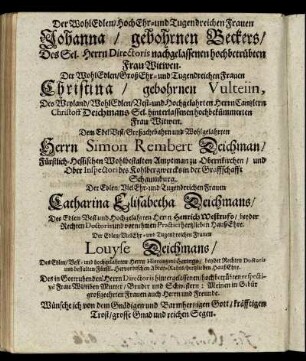 Der WohlEdlen/HochEhr-und Tugendreichen Frauen
Johanna/ gebohrnen Beckers/
Des Sel. Herrn Directoris nachgelassenen hochbetrübten
Frau Witwen.
Der WohlEdlen/GroßEhr-und Tugendreichen Frauen
Christina/ gebohrnen Vulteiin,
Des Weyland/WohlEdlen/Vest-und Hochgelahrten Herrn Cantzlern
Christoff Deichmans Sel. hinterlassenen hochbekümmerten
Frau Witwen.
Dem Edel Vest/Großachtbahrn und Wohlgelahrten
Herrn Simon Rembert Deichman/
Fürstlich-Hessischen Wohlbestalten Amptman zu Obernkirchen/ und
Ober Inspectori des Kohlbergwercks in der Graffschafft
Schaumburg.
Der Edlen/ Viel Ehr-und Tugendreichen Frauen
Catharina Elisabetha Deichmans/
Des Edlen/Vest und Hochgelahrten Herrn Henrich beyder
Rechten Doctorin und vornehmen Practici hertzlieben HaußEhre.
Der Edlen/VielEhr-und Tugendreichen Frauen
Louyse Deichmans/
Des Edlen/Vest-und hochgelahrten Herrn beyder Rechten Doctoris
HaußEhre.
Des in Gott ruhenden Herrn Directoris hinterlassenen hochbetrübten respectivè
Frau Witwen Mutter/Bruder und Schwestern: Meiner in Gebür
großgeehrten Frauen auch Herrn und Freunde.
Wünsche ich von dem Gnädigen und Barmhertzigen Gott/ kräfftigen
Trost/grosse Gnad und reichen Segen.